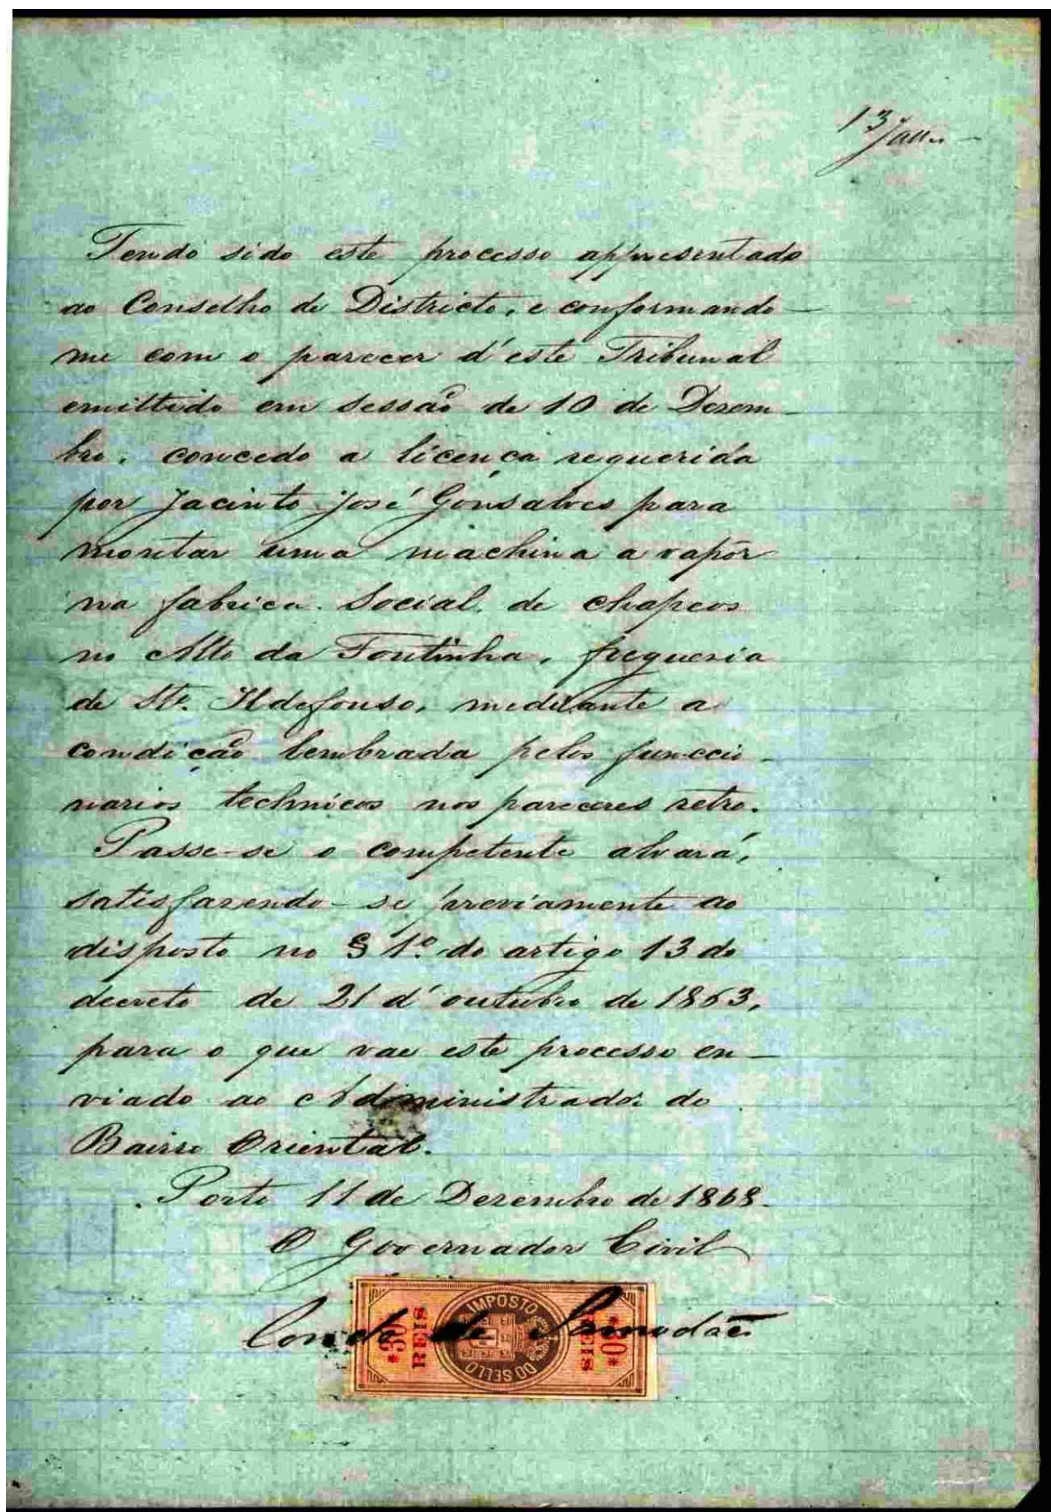 13 Jan.
Tendo sido este processo appresentado
ao Conselho de Districto, e conformando-
me com o parecer d'este Tribunal
emittido em sessão de 10 de Dezem-
bro, concedo a licença requerida
por Jacinto José Gonsalves para
montar uma machina a vapôr
na fabrica Social de chapeos
no Alto da Fontinha, freguesia
de Sto. Ildefonso, mediante a
condição lembrada pelos funccio-
narios technicos nos pareceres retro.
Passe-se o competente alvará,
satisfazendo-se previamente ao
disposto no § 1º do artigo 13 do
decreto de 21 d'outubro de 1863,
para o que vae este processo en-
viado ao Administrador do
Bairro Oriental.
Porto 11 de Dezembro de 1868.
O Governador Civil
Conde de Samodães
IMPOSTO DO SELLO
*30* REIS
*30* REIS